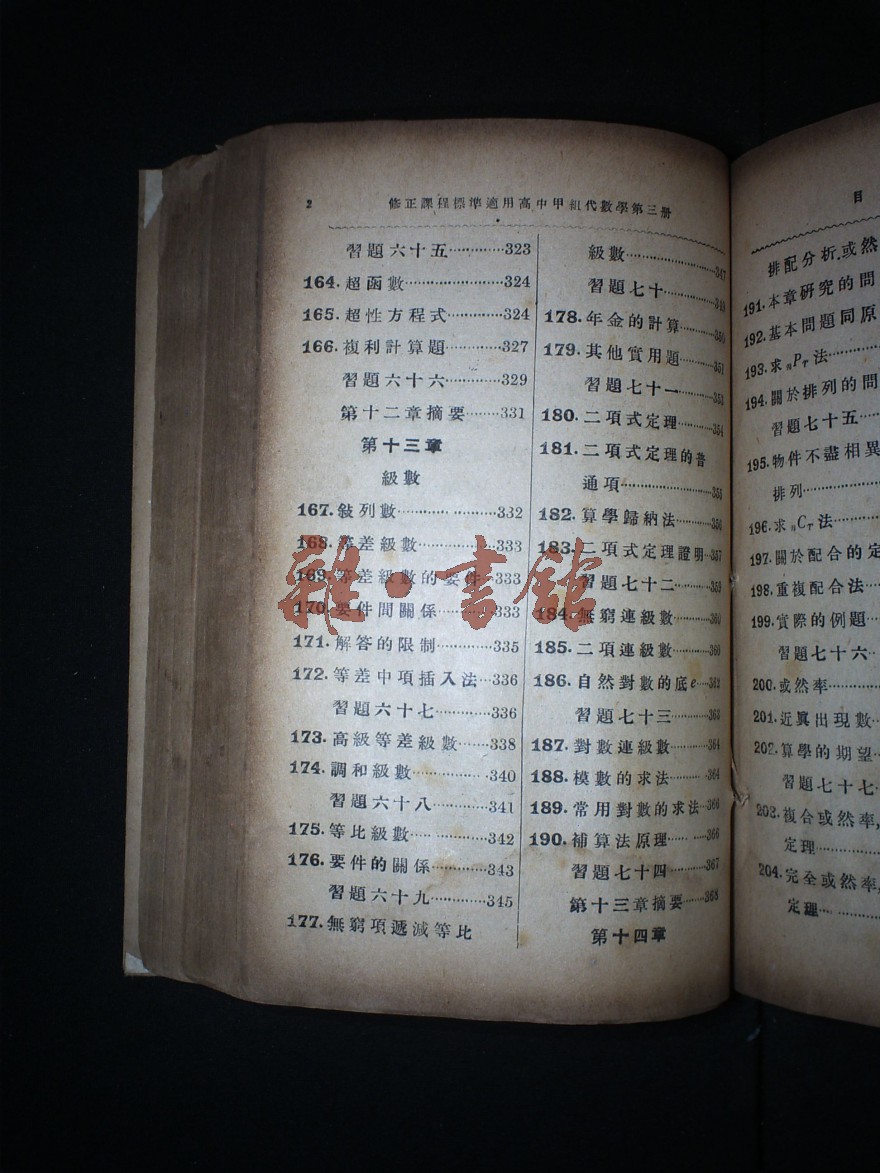 2 修正課程標準適用高中甲組代數學第三册
習題六十五············323
164.超函數························324
165.超性方程式············324
166.複利計算題············327
習題六十六············329
第十二章摘要········331
第十三章
級數
167.敍列數························332
168.等差級數··················333
169.等差級數的要件···333
170.要件間關係············333
171.解答的限制············335
172.等差中項插入法···336
習題六十七············336
173.高級等差級數········338
174.調和級數··················340
習題六十八············341
175.等比級數··················342
176.要件的關係············343
習題六十九············345
177.無窮項遞減等比
級數························347
習題七十··················349
178.年金的計算············350
179.其他實用題············351
習題七十一············353
180.二項式定理············354
181.二項式定理的普
通項························355
182.算學歸納法············356
183.二項式定理證明···357
習題七十二············359
184.無窮連級數············360
185.二項連級數············360
186.自然對數的底e···362
習題七十三············363
187.對數連級數············364
188.模數的求法············364
189.常用對數的求法···366
190.補算法原理············366
習題七十四············367
第十三章摘要········368
第十四章
目
排配分析,或然
191.本章研究的問
192.基本問題同原
193.求nPr法············
194.關於排列的問
習題七十五······
195.物件不盡相異
排列··················
196.求nCr法············
197.關於配合的定
198.重複配合法······
199.實際的例題······
習題七十六···
200.或然率············
201.近眞出現數···
202.算學的期望···
習題七十七···
203.複合或然率,
定理············
204.完全或然率,
定理············
雜·書館